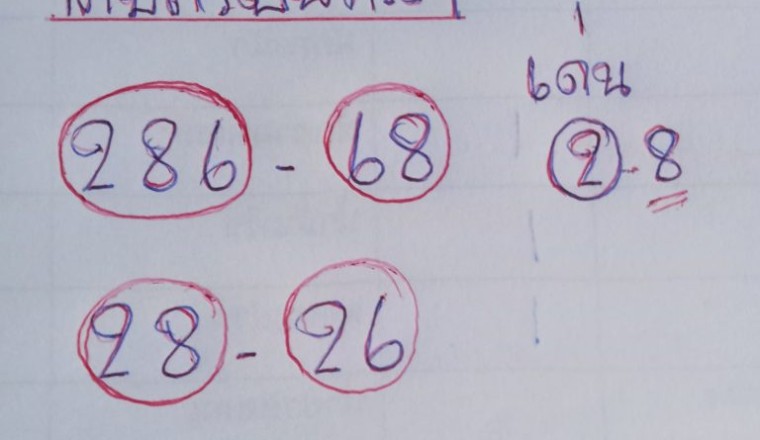 286 - 68
28 - 26
เด่น
2-8